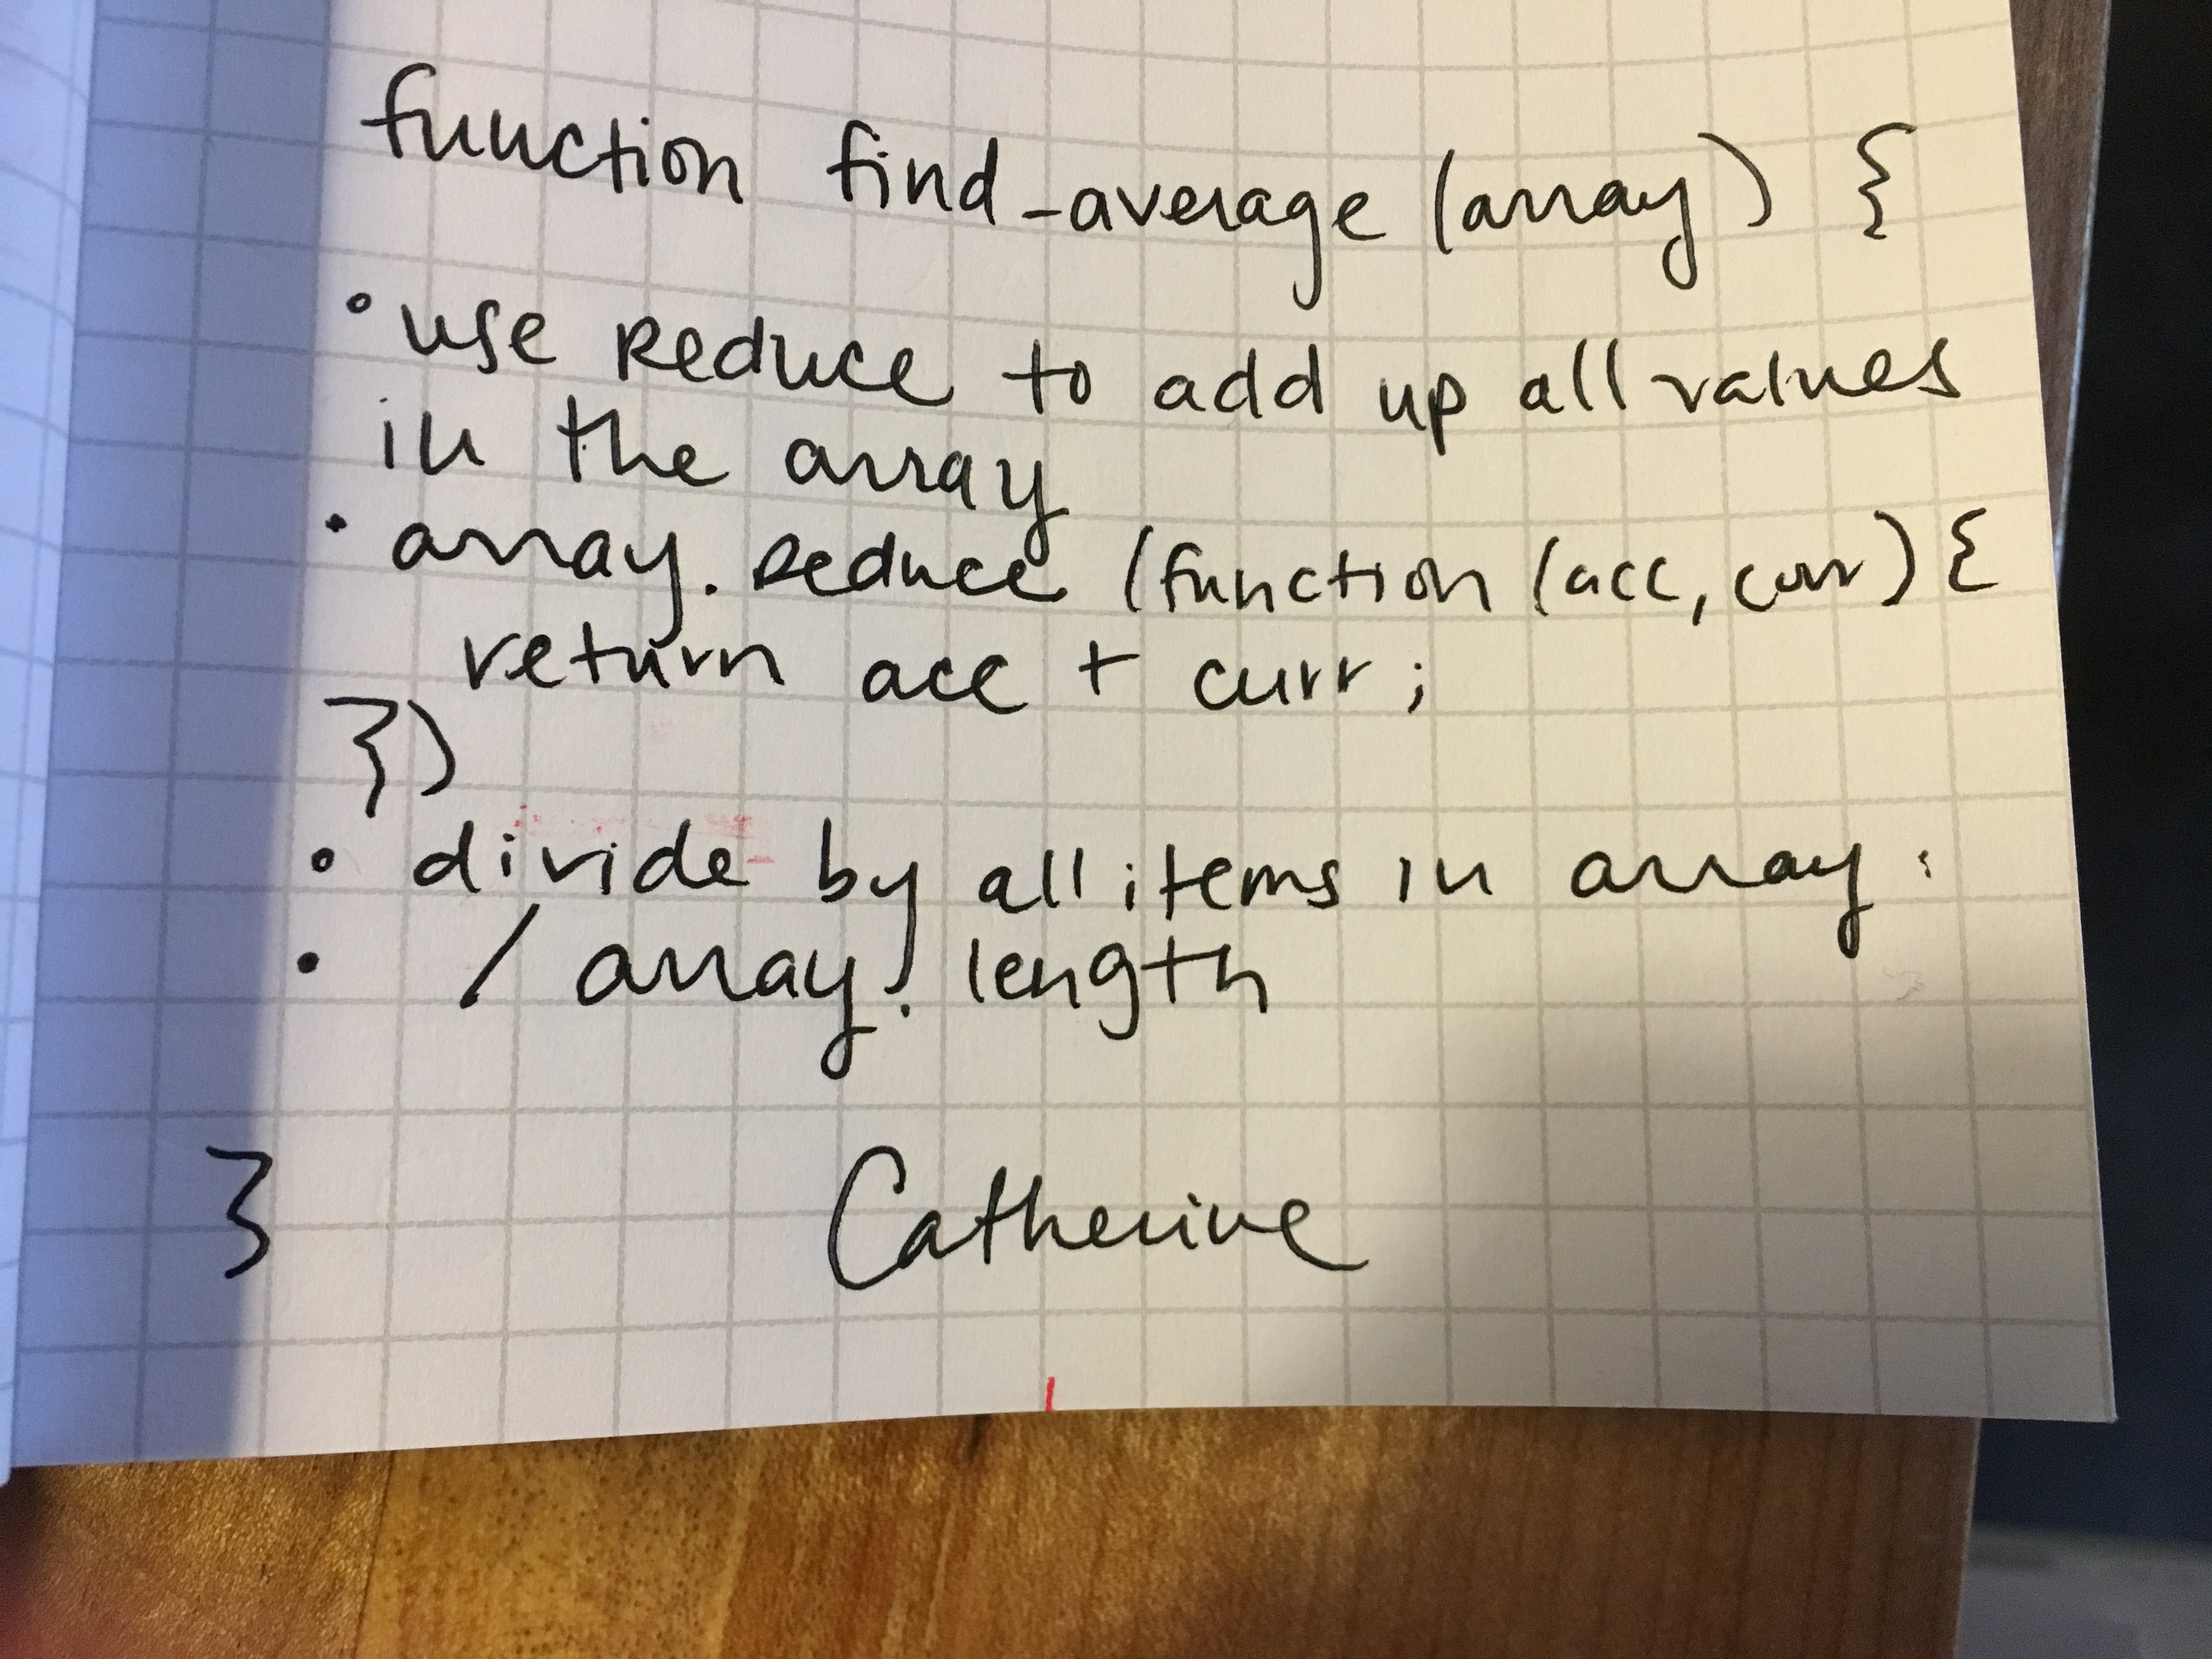 function find-average (array) {
• use reduce to add up all values
in the array
• array.reduce (function (acc, curr) {
return acc + curr;
})
• divide by all items in array:
• / array.length
}
Catherine